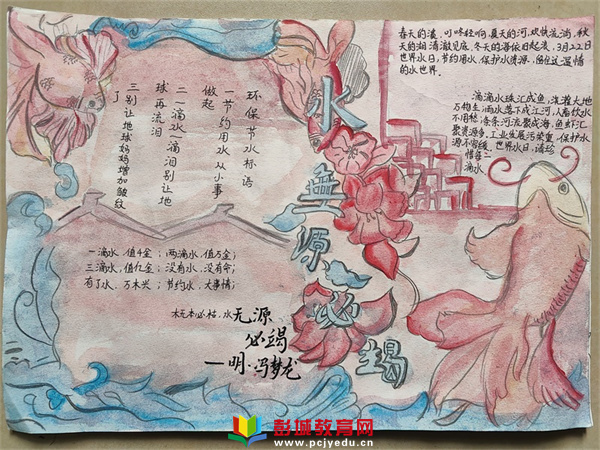 春天的滾，叮咚轻响，夏天的河，欢快流淌，秋
天的湖清澈见底，冬天的海依旧起浪，3月22日
世界水日，节约用水，保护水资源，留住这温情
的水世界。
滴滴水珠汇成鱼，浇灌大地
万物生，雨水落下成江河，人畜饮水
不用愁，条条河流聚成海，鱼虾汇
聚资源多，工业发展污染重，保护水
源不容缓，世界水日，请珍
惜每一
滴水
水無源必竭
环保节水标语
一节约用水从小事
做起
二一滴水一滴泪别让地
球再流泪
三别让地球妈妈增加皱纹
了
一滴水，值千金；两滴水，值万金；
三滴水，值亿金；没有水，没有命；
有了水，万木兴；节约水，大事情；
木无本必枯，水无源
必竭
——明·冯梦龙
彭城教育网
www.pcjyedu.cn